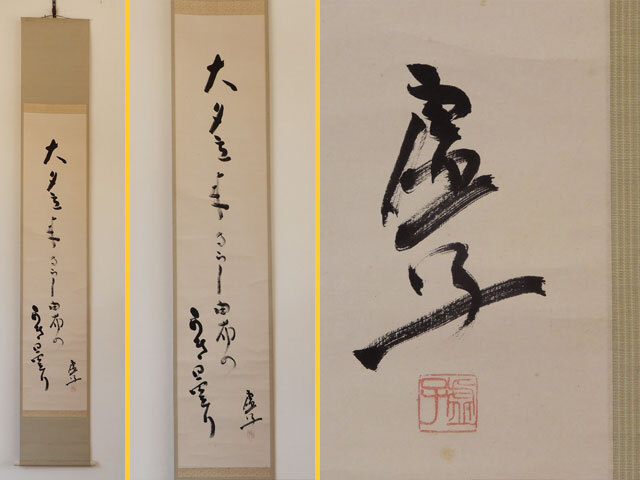 大夕立来るらし由布の
かき曇り
虚子
大夕立来るらし由布の
かき曇り
虚子
虚子
虚子